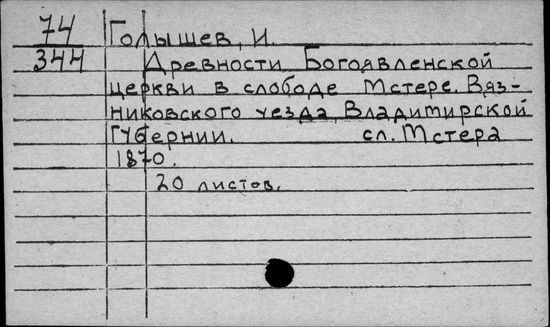 74 Голышев, И.
344 Древности Богоявленской
церкви в слободе Мстере. Вяз-
никовского уезда Владимирской
Губернии. сл. Мстера
1870.
20 листов.